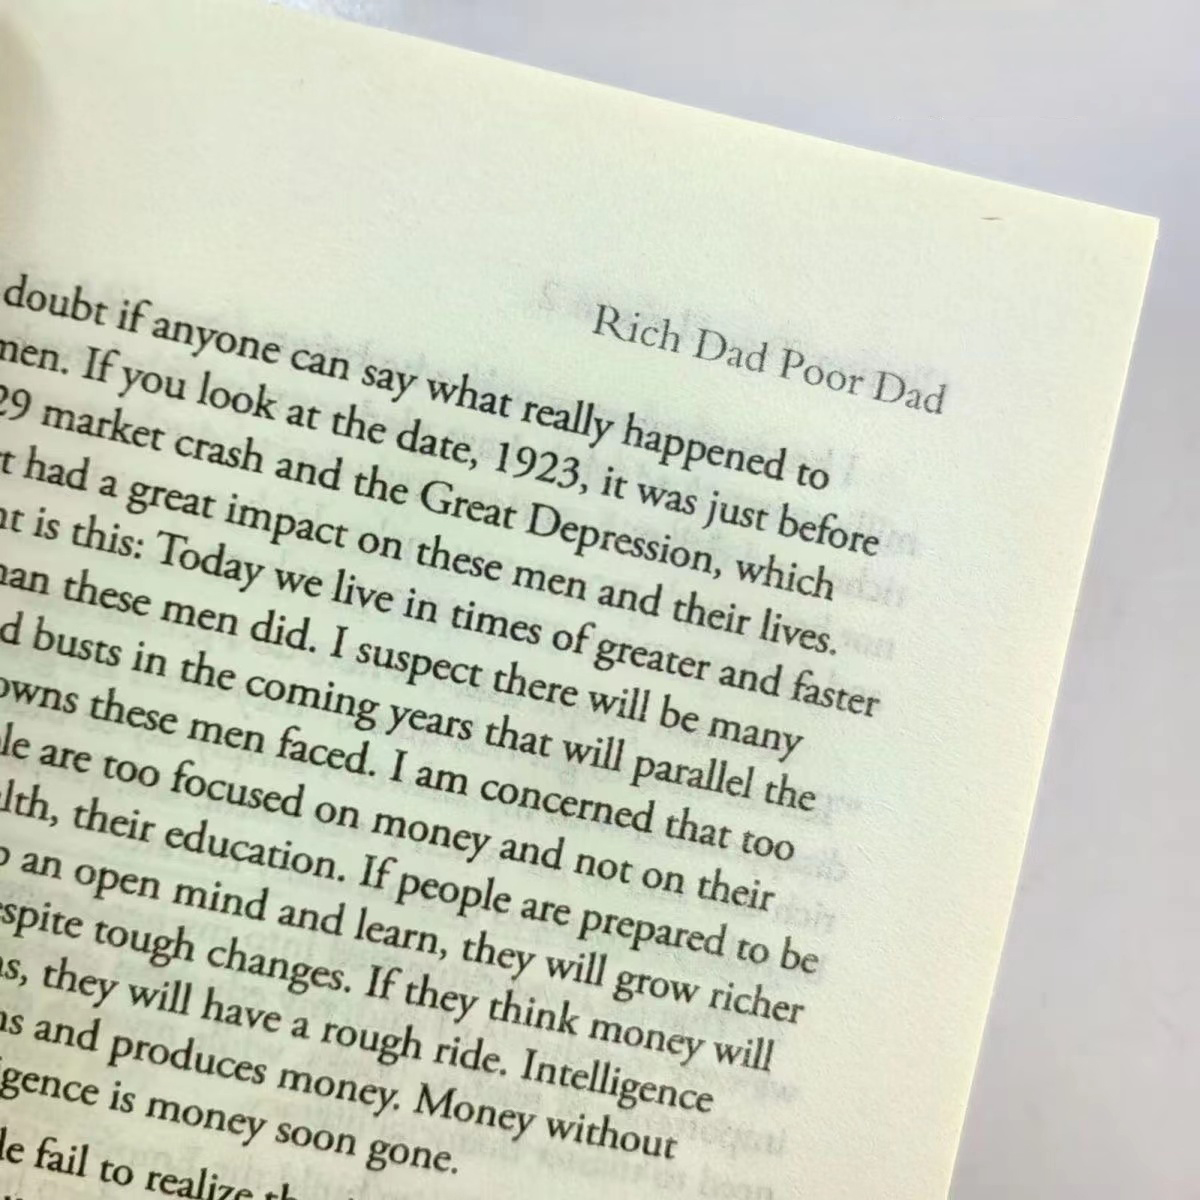 Rich Dad Poor Dad
doubt if anyone can say what really happened to
men. If you look at the date, 1923, it was just before
29 market crash and the Great Depression, which
t had a great impact on these men and their lives.
nt is this: Today we live in times of greater and faster
han these men did. I suspect there will be many
d busts in the coming years that will parallel the
owns these men faced. I am concerned that too
le are too focused on money and not on their
alth, their education. If people are prepared to be
p an open mind and learn, they will grow richer
espite tough changes. If they think money will
ns, they will have a rough ride. Intelligence
ns and produces money. Money without
igence is money soon gone.
le fail to realize